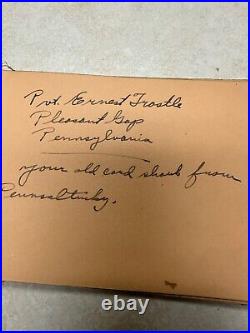 Pvt. Ernest Trostle
Pleasant Gap
Pennsylvania
your old card shark from
Pennsaltucky.